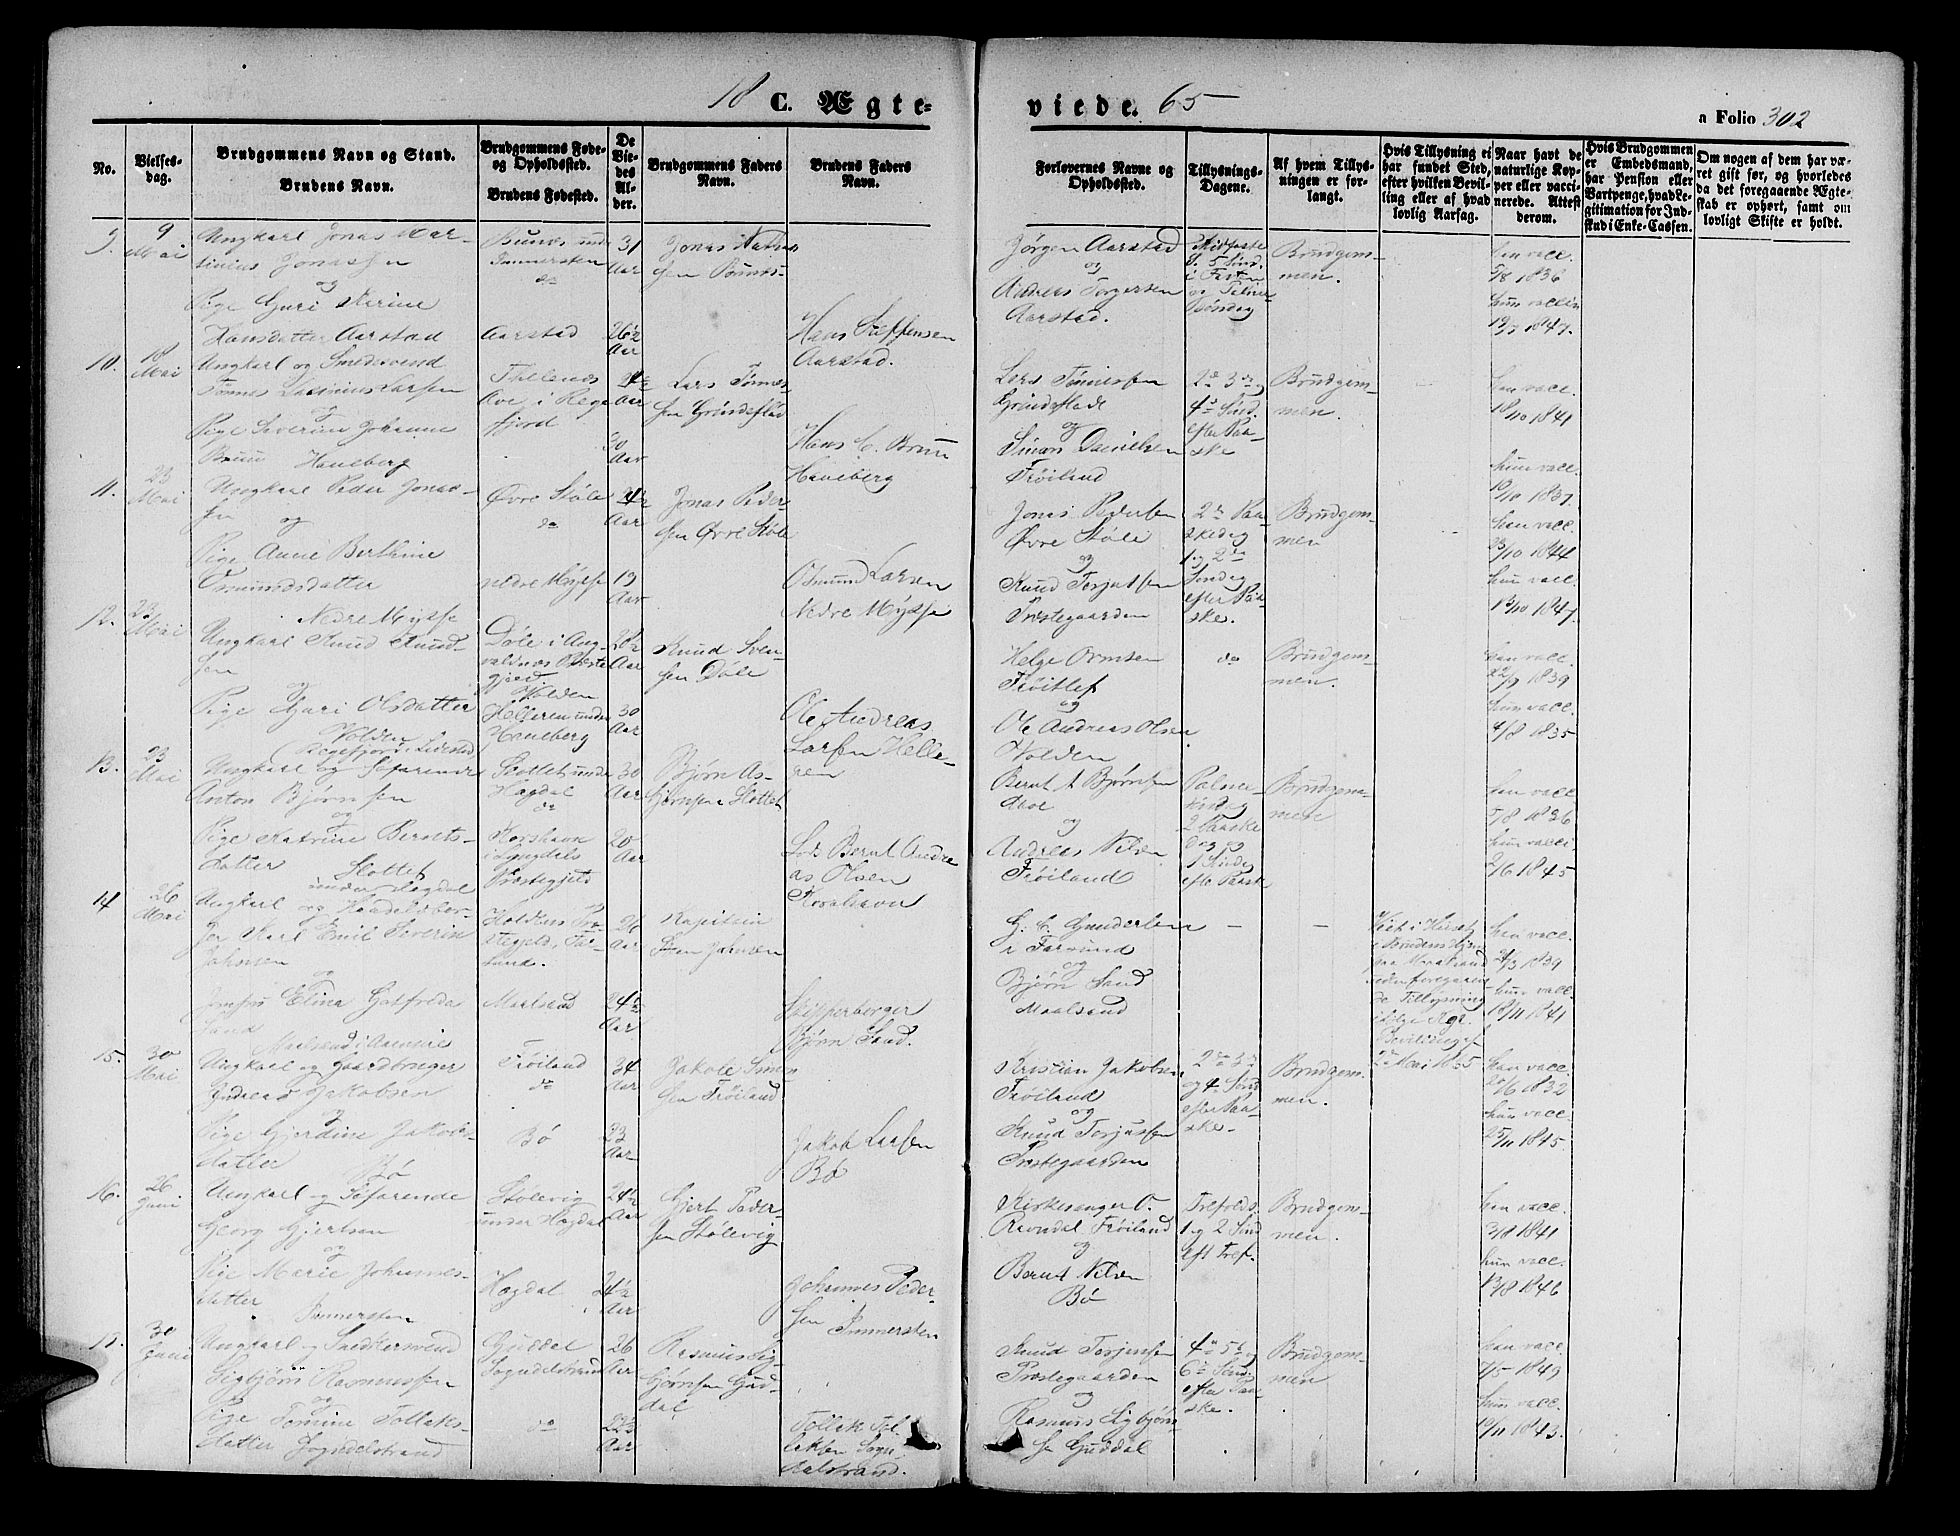 18 C. Ægte=
viede. 65
a Folio 302
No.
Vielses-
dag.
Brudgommens Navn og Stand.
Brudens Navn.
Brudgommens Føde-
og Opholdssted.
Brudens Fødested.
De
Vie-
des
Al-
der.
Brudgommens Faders
Navn.
Brudens Faders
Navn.
Forlovernes Navne og
Opholdssted.
Tillysnings-
Dagene.
Af hvem Tillys-
ningen er for-
langt.
Hvis Tillysning ei
har fundet Sted,
efter hvilken Bevil-
ling eller af hvad
lovlig Aarsag.
Naar havt de
naturlige Kop-
per eller vacci-
nerede. Attest
derom.
Hvis Brudgommen
er Embedsmand,
har Pension eller
Vartpenge, hvad Le-
gitimation for Ind-
skud i Enke-Cassen.
Om nogen af dem har væ-
ret gift før, og hvorledes
da det foregaaende Ægte-
skab er ophørt, samt om
lovligt Skifte er holdt.
9.
9
Mai
Ungkarl Jonas Mar-
tinius Jonassen
og
Pige Guri Karine
Hansdatter Aarstad
under
Immersten
do
Aarstad
31
Aar
26½
Aar
Jonas
sen
Hans Steffensen
Aarstad.
Jørgen Aarstad
og
Andreas Torgersen
Aarstad.
Midfaste
S. 5 Sønd.
i Fasten
og Palme
søndag
Brudgom-
men.
han vacc.
/8 1836
hun vaccin
19/7 1847.
10.
18
Mai
Ungkarl og Smedsvend
Tønnes Larsen
og
Pige Severine Johanne
Bruun Haneberg
i Rege
fjord
24½
Aar
30
Aar
Lars Tønnes-
sen
Hans C. Bruun
Haneberg
Lars Tønnessen
og
Simon Danielsen
Frøiland
2de 3de og
4de Sønd.
efter Paa-
ske
Brudgom-
men.
han vacc.
18/10 1841
hun vacc.
19/10 1837.
11.
23
Mai
Ungkarl Peder Jonas-
sen og
Pige Anne Berthine
Osmundsdatter
Nedre Mysse
Øvre Støle
do
nedre Mysse
24½
Aar
19
Aar
Jonas Peder-
sen Øvre Støle
Osmund Larsen
Nedre Mysse
Jonas Pedersen
Øvre Støle
og
Knud Torjussen
Præstegaarden
2den Paa-
skedag
1 og 2den
Søndag
efter Paa-
ske.
Brudgom-
men
han vacc.
23/10 1844
hun vacc.
13/10 1847.
12.
23
Mai
Ungkarl Knud Knud-
sen
og
Pige Guri Olsdatter
Volden
Døle i Aug-
valdnæs Præste
gjeld
Volden
Helleren under
Haneberg
28½
Aar
30
Aar
Knud Sven-
sen Døle
Ole Andreas
Larsen Helle-
ren
Helge Ormsen
og
Ole Andreas Olsen
Volden
do
Brudgom-
men.
han vacc.
22/9 1839
hun vacc.
4/8 1835
13.
23
Mai
Ungkarl og Søfarende
Anton Bjørnsen
og
Pige Katrine Bernts-
datter Slottet
under Hogdal
Slottet under
Hogdal
do
Korshavn
i Lyngdals
Præstegjeld
30
Aar
20
Aar
Bjørn As-
bjørnsen Slottet
Lars Bernt Andre
as Olsen
Korshavn
Bernt A Bjørnsen
og
Andreas Nilsen
Frøiland
Palme
søndag
2 Paaske
dag og
1 Søndag
efter Paaske
Brudgom-
men
han vacc.
5/8 1836
hun vacci
2/6 1845
14
26
Mai
Ungkarl og Handelsbor-
ger Karl Emil Severin
Johnsen
og
Jomfru Elina Gotfreda
Sand
Maalsund i Aaensire
26
Aar
Maalsund
24½
Aar
Kapitain
Johnsen
Skipperborger
Bjørn Sand.
G. C. Gundersen
i Farsund
og
Bjørn Sand
Maalsund
–
–
Viet i Huset
i Brudens Hjem
paa Maalsund
uden foregaaen
de Tillysning
ifølge Kgl.
Bevilling af
2den Mai 1865
han vacc.
2/3 1839
hun vacc.
18/11 1841
15.
30
Mai
Ungkarl og Gaardbruger
Andreas Jakobsen
og
Pige Gjerdine Jakobs-
datter Bø
Frøiland
do
Bø
34
Aar
23
Aar
Jakob Simon
sen Frøiland
Jakob Larsen
Bø
Kristian Jakobsen
Frøiland
og
Knud Torjussen
Præstegaarden
2den 3de
og 4de Sønd
efter Paa-
ske.
Brudgom-
men.
han vacc.
20/6 1832
hun vacc.
25/11 1845.
16.
26
Juni
Ungkarl og Søfarende
Georg Gjertsen
og
Pige Marie Johannes-
datter
Immersten
Stølevig
under Hogdal
Hogdal
24½
Aar
24½
Aar
Gjert Peder-
sen Stølevig
Johannes Peder-
sen Immersten
Kirkesanger O.
Ravndal Frøiland
og
Bernt Nilsen
Bø
Trefolds.
1 og 2 Sønd
eft Tref.
Brudgom-
men.
han vacc.
3/8 1841
hun vacc.
13/8 1846
17.
30
Juni
Ungkarl og Snedkersvend
Sigbjørn Rasmussen
og
Pige Tomine Tollaks-
datter Sogndalstrand
Guddal
Sogndalstrand
do
26
Aar
22½
Aar
Rasmus Sig-
bjørnsen Gud-
dal
Tollak Tol-
laksen Sogn
dalstrand.
Knud Torjussen
Præstegaarden
og
Rasmus Sigbjørn
sen Guddal
4de 5te og
6te Sønd.
efter Paa
ske.
Brudgom-
men
han vacc.
/5 1849
hun vacc.
19/11 1843.